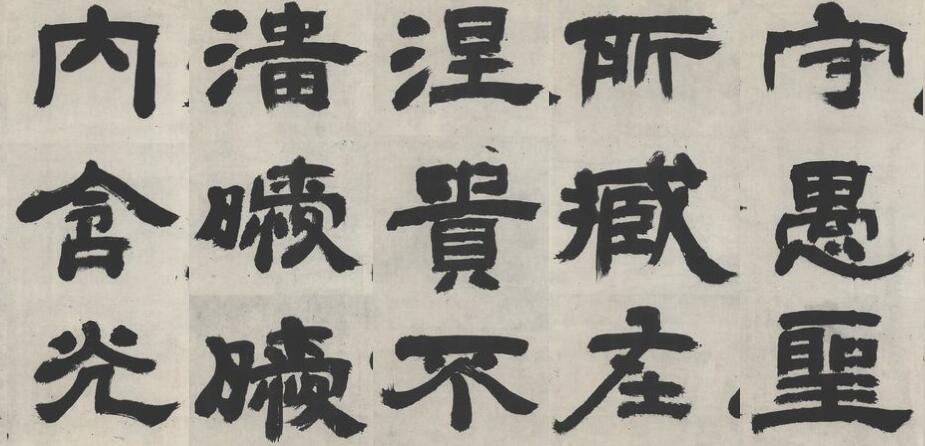 守愚聖
所臧在
涅貴不
淄曖曖
內含光